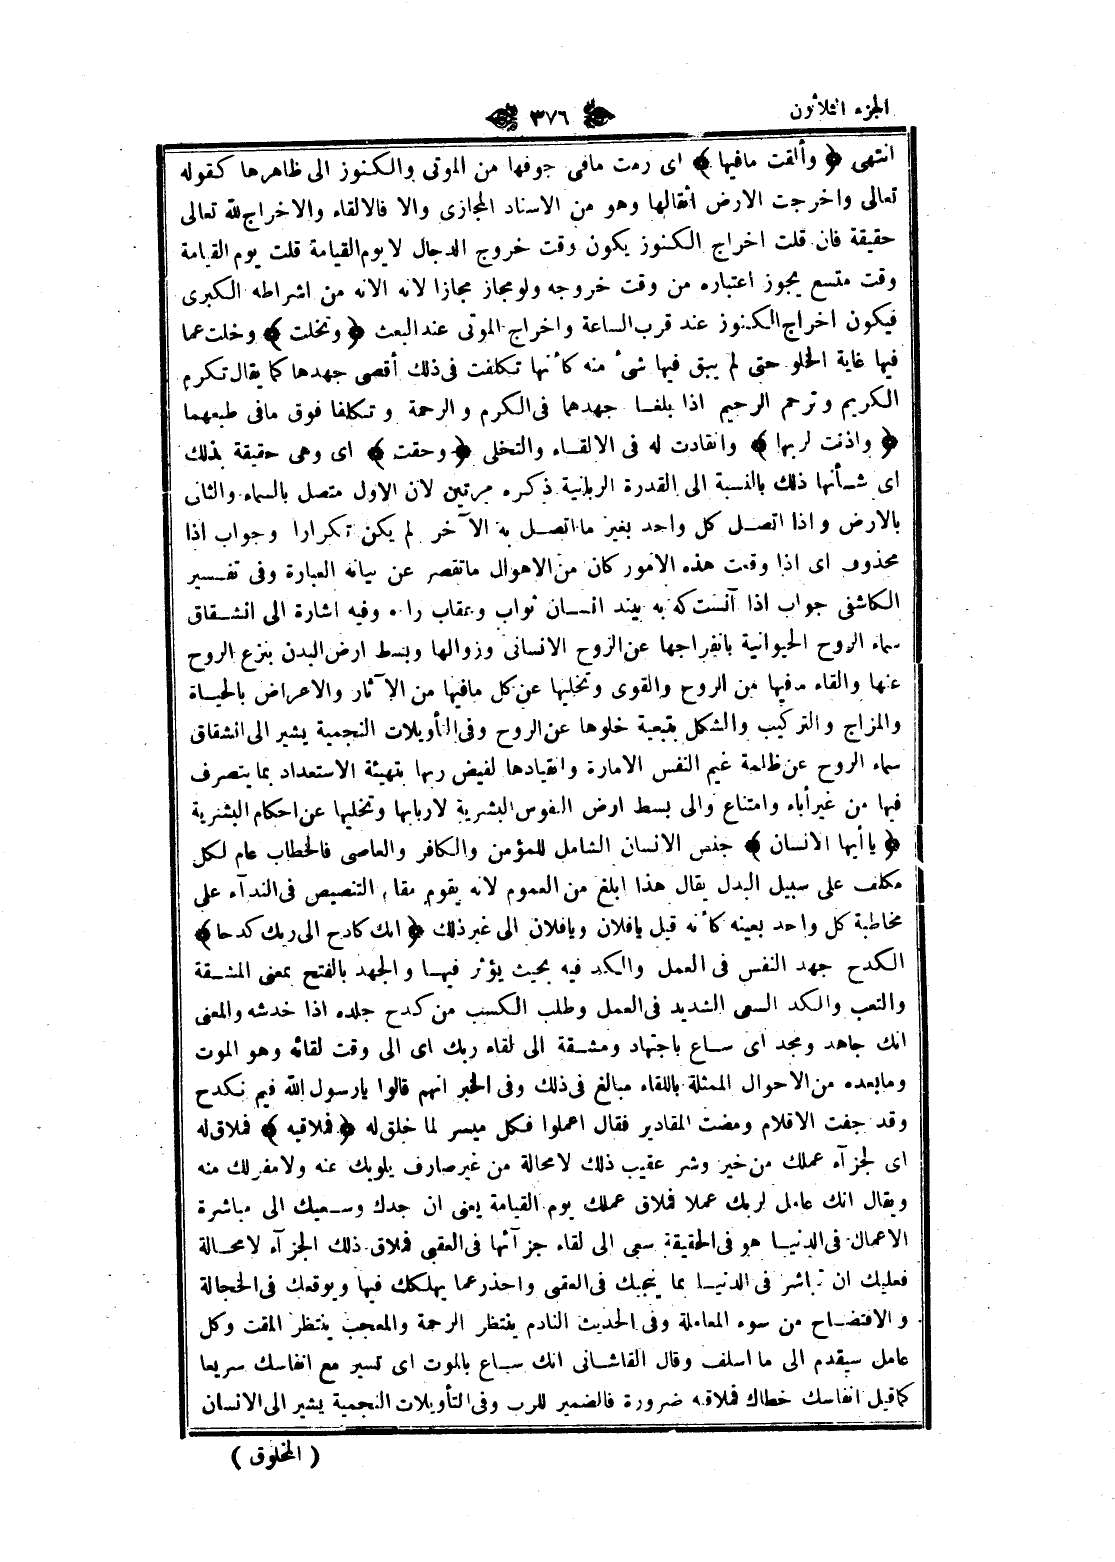 الجزء الثلاثون
٣٧٦
انتهى ﴿ وألقت مافيها ﴾ اى رمت مافى جوفها من الموتى والكنوز الى ظاهرها كقوله
تعالى واخرجت الارض اثقالها وهو من الاسناد المجازى والا فالالقاء والاخراج لله تعالى
حقيقة فان قلت اخراج الكنوز يكون وقت خروج الدجال لا يوم القيامة قلت يوم القيامة
وقت متسع يجوز اعتباره من وقت خروجه ولو مجاز مجازا لانه الانه من اشراطه الكبرى
فيكون اخراج الكنوز عند قرب الساعة واخراج الموتى عند البعث ﴿ وتخلت ﴾ وخلت عما
فيها غاية الخلو حتى لم يبق فيها شىء منه كأنها تكلفت فى ذلك أقصى جهدها كما يقال تكرم
الكريم وترحم الرحيم اذا بلغا جهدهما فى الكرم والرحمة وتكلفا فوق مافى طبعهما
﴿ واذنت لربها ﴾ وانقادت له فى الالقاء والتخلى ﴿ وحقت ﴾ اى وهى حقيقة بذلك
اى شأنها ذلك بالنسبة الى القدرة الربانية ذكره مرتين لان الاول متصل بالسماء والثانى
بالارض واذا اتصل كل واحد بغير ما اتصل به الآخر لم يكن تكرارا وجواب اذا
محذوف اى اذا وقعت هذه الامور كان من الاهوال ماتقصر عن بيانه العبارة وفى تفسير
الكاشفى جواب اذا آنست كه به بيند انسان ثواب وعقاب را . وفيه اشارة الى انشقاق
سماء الروح الحيوانية بانفراجها عن الروح الانسانى وزوالها وبسط ارض البدن بنزع الروح
عنها والقاء مافيها من الروح والقوى وتخليها عن كل مافيها من الآثار والاعراض بالحياة
والمزاج والتركيب والشكل بتبعية خلوها عن الروح وفى التأويلات النجمية يشير الى انشقاق
سماء الروح عن ظلمة غيم النفس الامارة وانقيادها لفيض ربها بتهيئة الاستعداد بما يتصرف
فيها من غير أباء وامتناع والى بسط ارض النفوس البشرية لاربابها وتخليها عن احكام البشرية
﴿ ياأيها الانسان ﴾ جنس الانسان الشامل للمؤمن والكافر والعاصى فالخطاب عام لكل
مكلف على سبيل البدل يقال هذا ابلغ من العموم لانه يقوم مقام التنصيص فى الندآء على
مخاطبة كل واحد بعينه كأنه قيل يافلان ويافلان الى غير ذلك ﴿ انك كادح الى ربك كدحا ﴾
الكدح جهد النفس فى العمل والكد فيه بحيث يؤثر فيها والجهد بالفتح بمعنى المشقة
والتعب والكد السعى الشديد فى العمل وطلب الكسب من كدح جلده اذا خدشه والمعنى
انك جاهد ومجد اى ساع باجتهاد ومشقة الى لقاء ربك اى الى وقت لقائه وهو الموت
ومابعده من الاحوال الممثلة باللقاء مبالغ فى ذلك وفى الخبر انهم قالوا يارسول الله فيم نكدح
وقد جفت الاقلام ومضت المقادير فقال اعملوا فكل ميسر لما خلق له ﴿ فملاقيه ﴾ فملاق له
اى لجزآء عملك من خير وشر عقيب ذلك لامحالة من غير صارف يلويك عنه ولامفر لك منه
ويقال انك عامل لربك عملا فملاق عملك يوم القيامة يعنى ان جدك وسعيك الى مباشرة
الاعمال فى الدنيا هو فى الحقيقة سعى الى لقاء جزآئها فى العقبى فملاق ذلك الجزآء لامحالة
فعليك ان تباشر فى الدنيا بما ينجيك فى العقبى واحذر عما يهلكك فيها ويوقعك فى الخجالة
والافتضاح من سوء المعاملة وفى الحديث النادم ينتظر الرحمة والمعجب ينتظر المقت وكل
عامل سيقدم الى ما اسلف وقال القاشانى انك ساع بالموت اى تسير مع انفاسك سريعا
كماقيل انفاسك خطاك فملاقيه ضرورة فالضمير للرب وفى التأويلات النجمية يشير الى الانسان
( المخلوق )